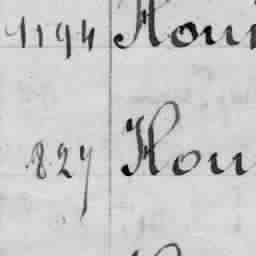 1194 Hou
827 Hou